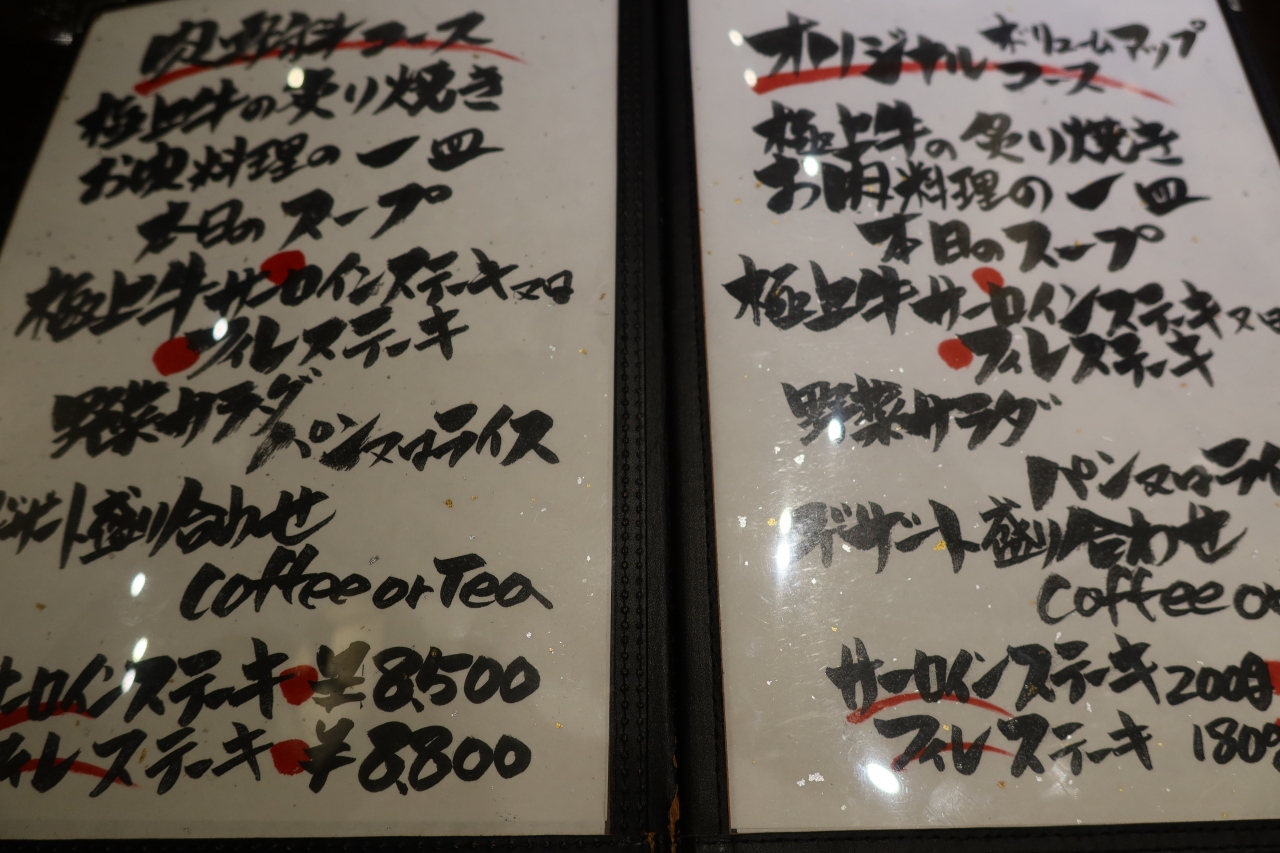 コース
極上牛の炙り焼き
お肉料理の一皿
本日のスープ
極上牛サーロインステーキ又は
フィレステーキ
野菜サラダ
パン又はライス
デザート盛り合わせ
Coffee or Tea
サーロインステーキ ¥8,500
フィレステーキ ¥8,800
オリジナルボリュームアップ
コース
極上牛の炙り焼き
お肉料理の一皿
本日のスープ
極上牛サーロインステーキ又は
フィレステーキ
野菜サラダ
パン又はライ
デザート盛り合わせ
Coffee or
サーロインステーキ 200g
フィレステーキ 180g